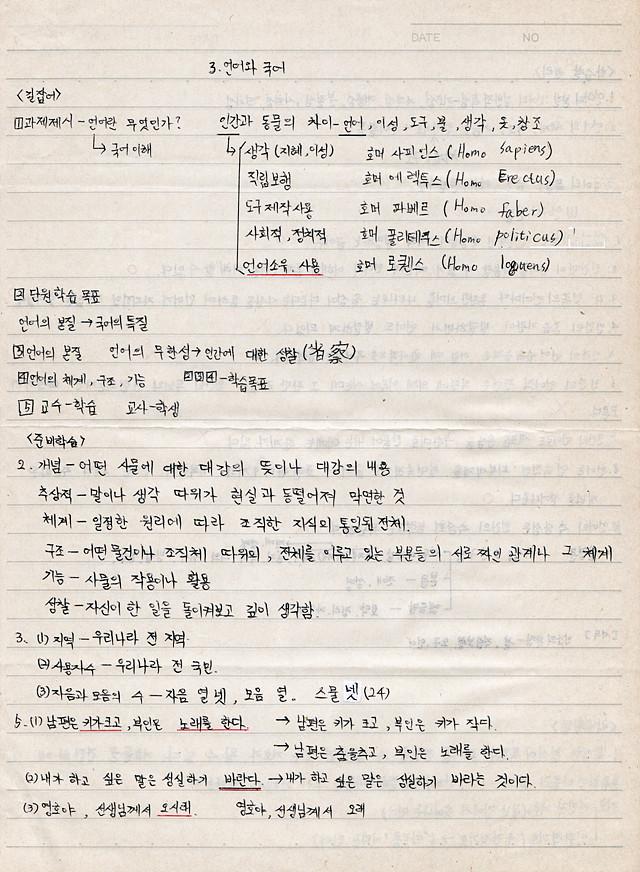 DATE NO
3. 언어와 국어
<길잡이>
1 과제제시 - 언어란 무엇인가? 인간과 동물의 차이 - 언어, 이성, 도구, 불, 생각, 옷, 창조
↳ 국어 이해 생각 (지혜, 이성) 호머 사피언스 (Homo sapiens)
직립보행 호머 에렉투스 (Homo Erectus)
도구 제작사용 호머 파베르 (Homo faber)
사회적, 정치적 호머 폴리테쿠스 (Homo politicus)
언어소유, 사용 호머 로퀜스 (Homo loguens)
2 단원학습 목표
언어의 본질 → 국어의 특질
3 언어의 본질 언어의 무한성 → 인간에 대한 성찰 (省察)
4 언어의 체계, 구조, 기능 2 3 4 - 학습목표
5 교수-학습 교사-학생
<준비학습>
2. 개념 - 어떤 사물에 대한 대강의 뜻이나 대강의 내용
추상적 - 말이나 생각 따위가 현실과 동떨어져 막연한 것
체계 - 일정한 원리에 따라 조직한 지식의 통일된 전체.
구조 - 어떤 물건이나 조직체 따위의, 전체를 이루고 있는 부분들의 서로 짜인 관계나 그 체계
기능 - 사물의 작용이나 활용
성찰 - 자신이 한 일을 돌이켜보고 깊이 생각함
3. (1) 지역 - 우리나라 전 지역
(2) 사용자수 - 우리나라 전 국민.
(3) 자음과 모음의 수 - 자음 열 넷, 모음 열. 스물 넷 (24)
5. (1) 남편은 키가 크고, 부인은 노래를 한다. → 남편은 키가 크고, 부인은 키가 작다.
→ 남편은 춤을추고, 부인은 노래를 한다.
(2) 내가 하고 싶은 말은 성실하기 바란다. → 내가 하고 싶은 말은 성실하기 바라는 것이다.
(3) 영호야, 선생님께서 오시래. 영호야, 선생님께서 오래